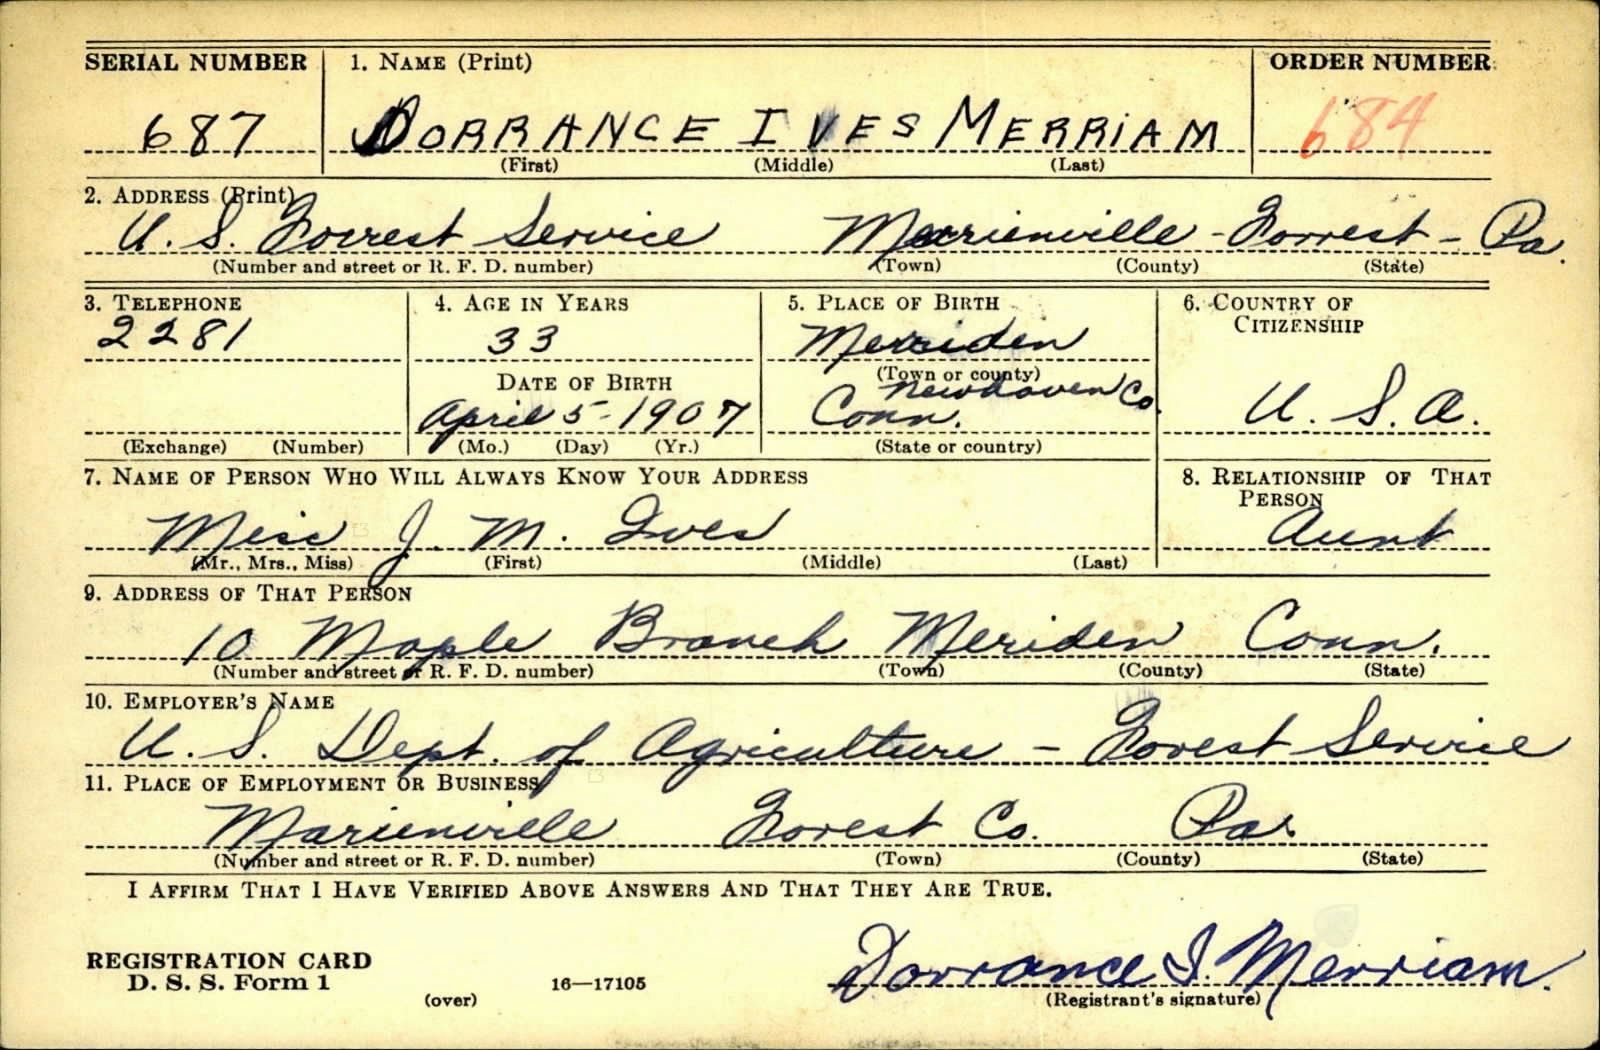 SERIAL NUMBER 1. NAME (Print) ORDER NUMBER
687 DORRANCE IVES MERRIAM 684
(First) (Middle) (Last)
2. ADDRESS (Print)
U. S. Forrest Service Merrienville - Forrest - Pa.
(Number and street or R. F. D. number) (Town) (County) (State)
3. TELEPHONE 4. AGE IN YEARS 5. PLACE OF BIRTH 6. COUNTRY OF CITIZENSHIP
2281 33 Merriden
(Town or county)
DATE OF BIRTH Newhaven Co.
April 5-1907 Conn. U. S. A.
(Exchange) (Number) (Mo.) (Day) (Yr.) (State or country)
7. NAME OF PERSON WHO WILL ALWAYS KNOW YOUR ADDRESS 8. RELATIONSHIP OF THAT PERSON
Miss J. M. Ives Aunt
(Mr., Mrs., Miss) (First) (Middle) (Last)
9. ADDRESS OF THAT PERSON
10 Maple Branch Meriden Conn.
(Number and street or R. F. D. number) (Town) (County) (State)
10. EMPLOYER'S NAME
U. S. Dept. of Agriculture - Forest Service
11. PLACE OF EMPLOYMENT OR BUSINESS
Marienville Forest Co. Pa.
(Number and street or R. F. D. number) (Town) (County) (State)
I AFFIRM THAT I HAVE VERIFIED ABOVE ANSWERS AND THAT THEY ARE TRUE.
REGISTRATION CARD
D. S. S. Form 1 16—17105 Dorrance I. Merriam.
(over) (Registrant's signature)